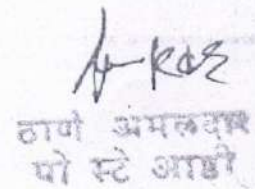 ठाणे अमलदार
पो स्टे आष्टी